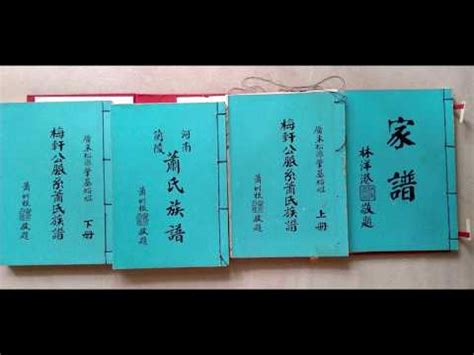 廣東松源肇基始祖
梅軒公脈系蕭氏族譜
下冊
敬題
河南
蘭陵
蕭氏族譜
敬題
廣東松源肇基始祖
梅軒公脈系蕭氏族譜
上冊
敬題
家譜
林洋港敬題